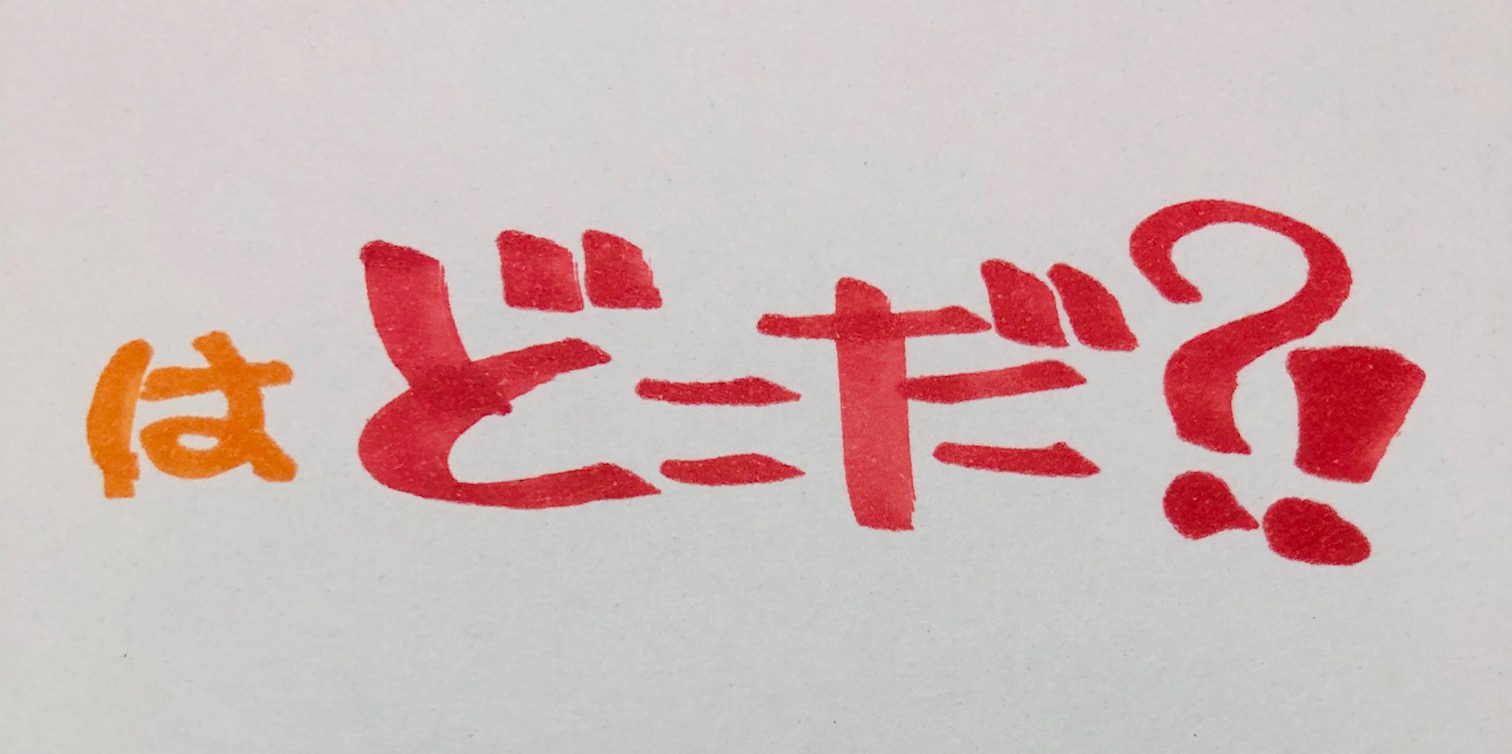 はどこだ?!